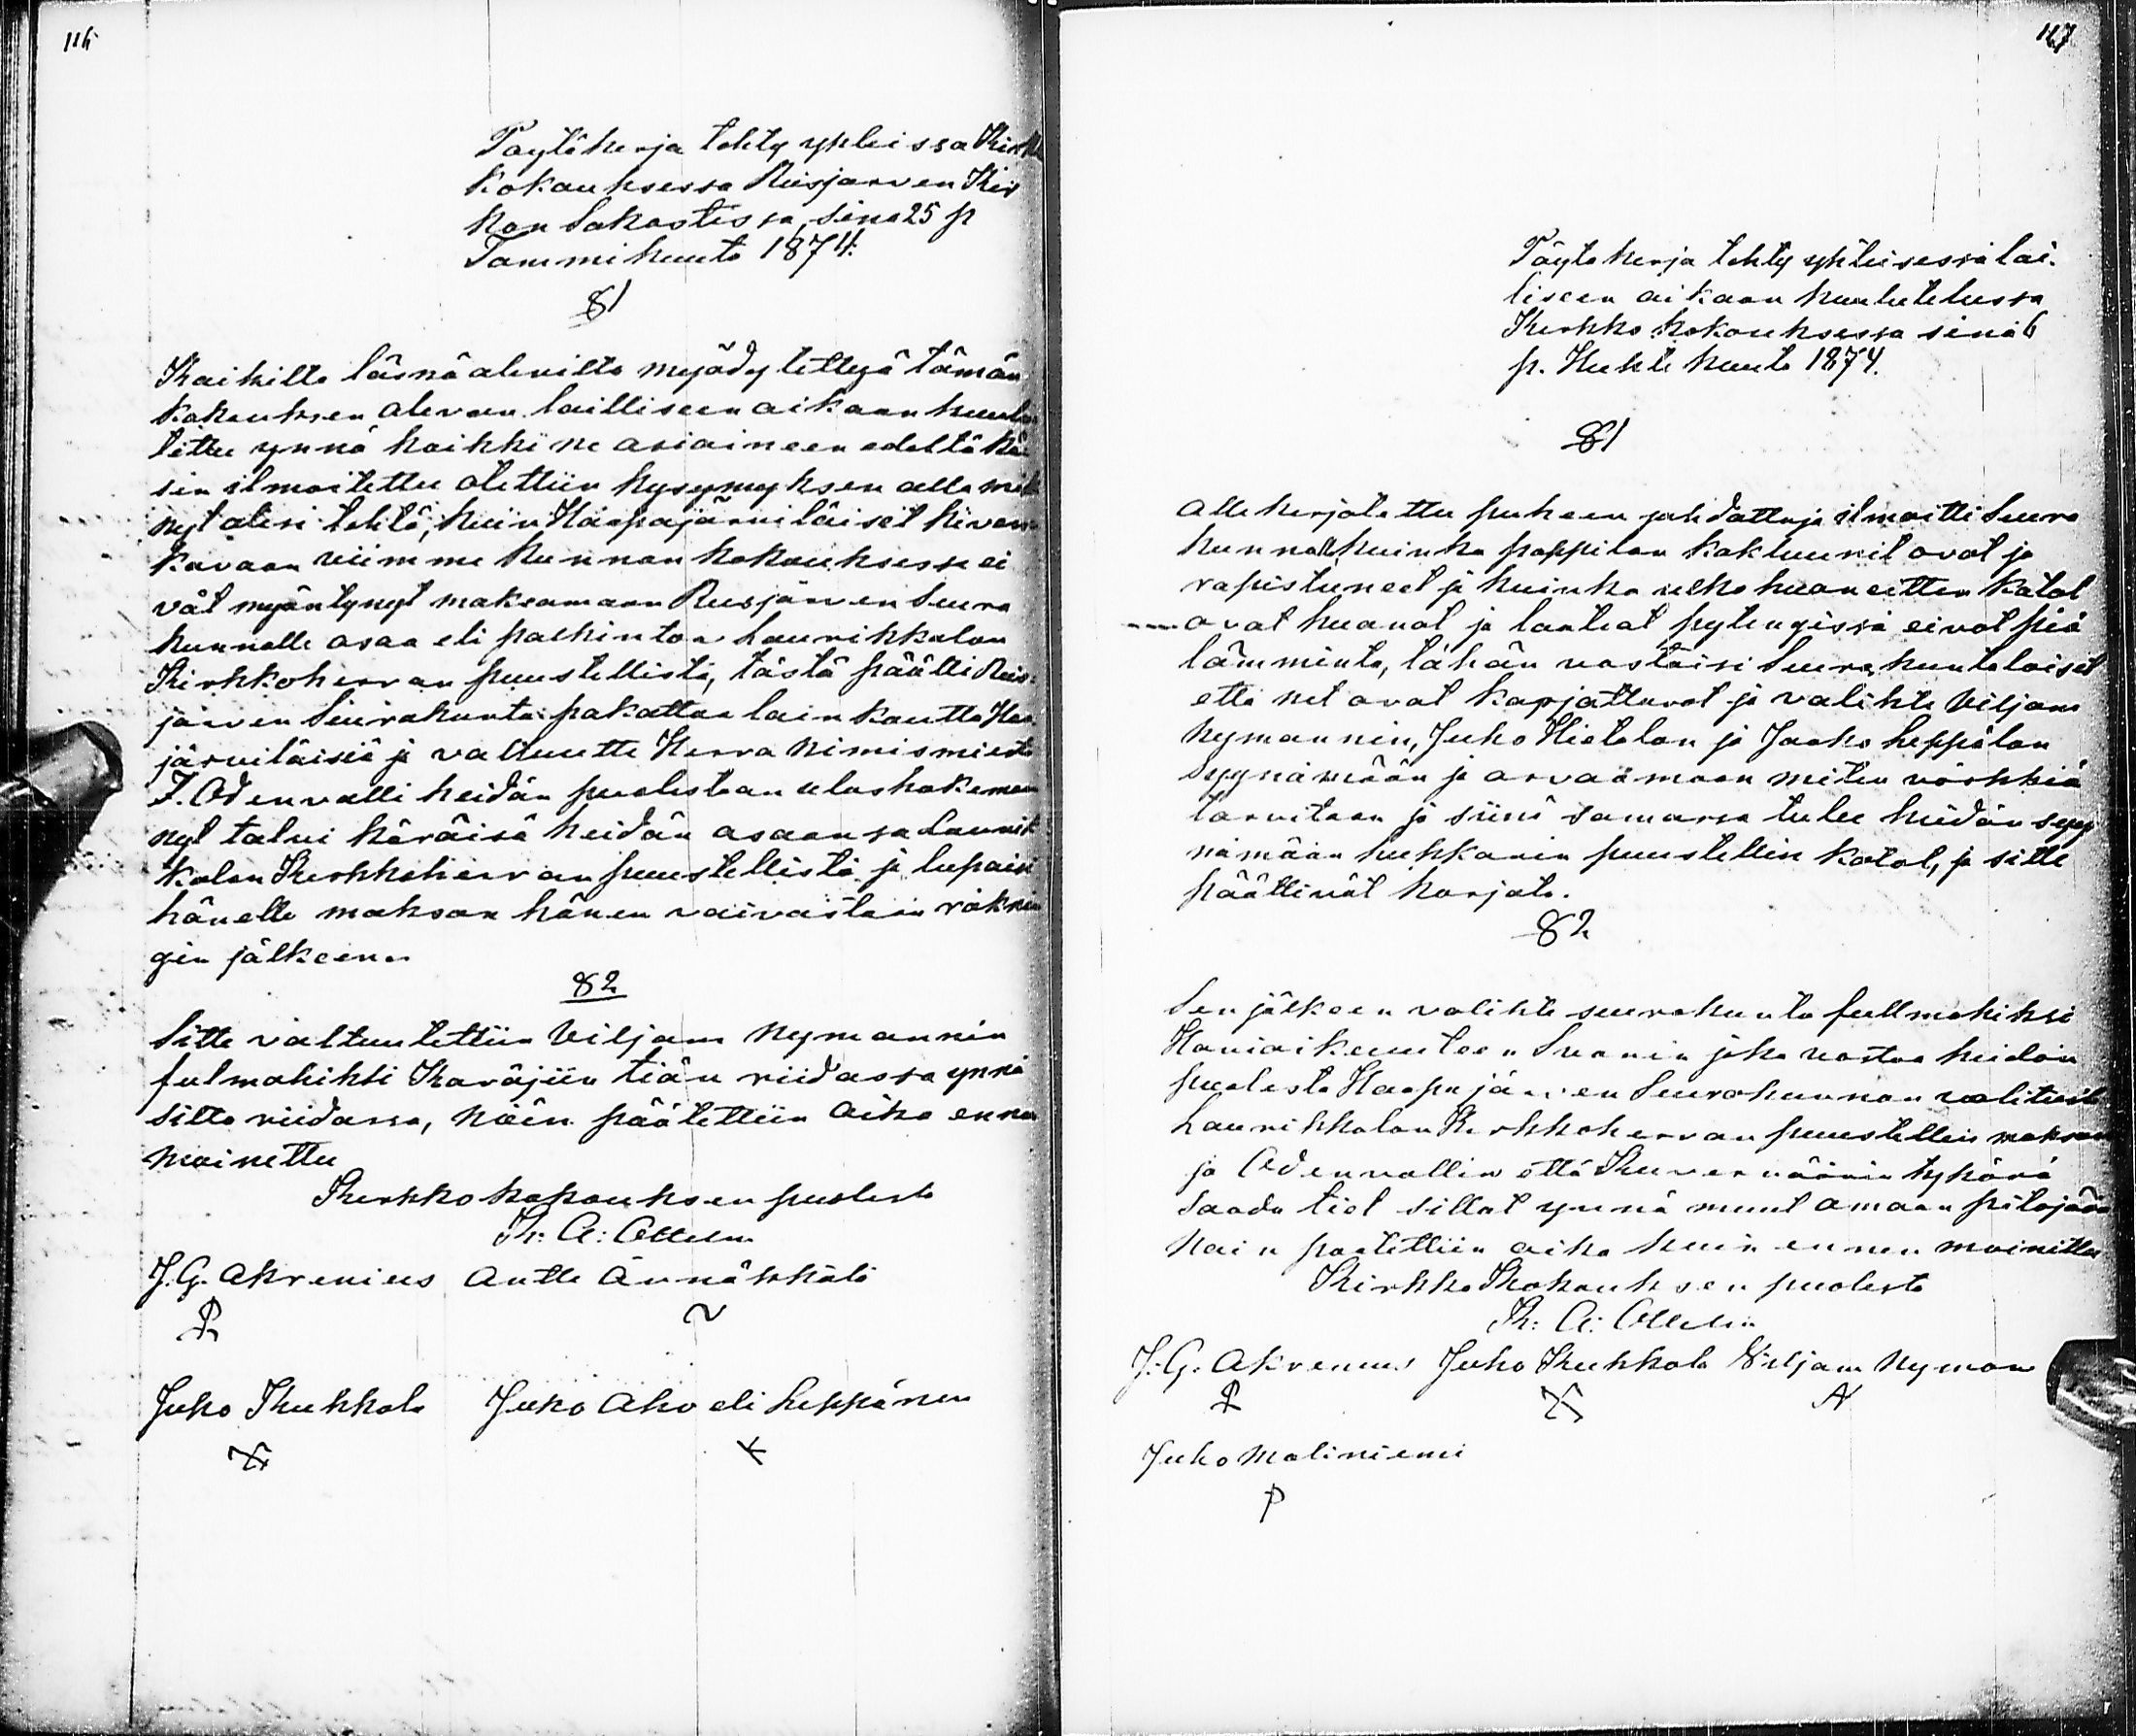 116
Pöytäkirja tehty ykleissä Kirkko
Kokouksessa Reisjärven Kir
kon Sakastissa, sinä 25 p
Tammikuuta 1874.
§1
Kaikilta läsnäolevilta myödytettyä tämän
Kokouksen olevan lailliseen aikaan kuulu
tettu ynnä kaikki ne asiaineen edeltä kä
sin ilmoitettu otettiin kysymyksen alla mitä
nyt olisi tehtä, kuin Haapajärviläiset
viimme kunnan kokouksessa ei
vät myöntynyt maksamaan Reisjärven Seura
kunnalle osaa eli palkintoa Laurikkalan
Kirkkoherran puustellista, tästä päätti Reis=
järven Seurakunta pakottaa lain kautta Haa
järviläisiä ja valtuutta Herra Nimismiestä
F. Odenvalli heidän puolestaan uloshakemaan
nyt talvi käräisä heidän osaansa Laurik
kalan Kirkkoherran puustellistä ja lupaisi
hänelle maksaa hänen vaivastaan räknin
gin jälkeen.
§2
Sitte valtuutettiin Viljam Nymannin
fulmahiksi Käräjiin tiän riidassa ynnä
silta riidassa, näin päätettiin aika ennen
mainettu
Kirkko kokouksen puolesta
K: A: Ottelin
J. G. Akrenius Antti Ännäkkälä
Juho Kukkola Juho Aho eli Leppänen
117
Pöytäkirja tehty yhteisessä lail
liseen aikaan kuulutelussa
Kirkko kokouksessa sinä 6
p. Huhti kuuta 1874.
§1
Allekirjotettu puheen johdattaja ilmoitti Seura
kunnall kuinka pappilan kakluunit ovat ja
rapistuneet ja kuinka ulko huoneitten katol
ovat huonot ja lautiat pytingissä eivät piä
lämmintä, tähän vastaisi Seurakuntalaiset
että net ovat korjattavat ja valihte Viljam
Nymannin, Juho Hietalan ja Jaako Leppälän
syynämään ja arvaamaan miten värkkiä
tarvitaan ja siinä samassa tulee heidän syy
nämään kukkanin puustellin katol, ja sitte
päättivät korjata.
§2
Sen jälkeen valihte seurakunta fullmahiksi
Svanin joka vastaa heidän
puolesta Haapajärven Seurakunnan valituste
Laurikkalan Kirkkoherran puustellin maksan
ja Odenvallin että Kuvernöörin tykönä
Saada tiet sillat ynnä muut omaan pitäjään
Näin päätettiin aika kuin ennen mainittu
Kirkko Kokouksen puolesta
K: A: Ottelin
J: G. Akrenius Juho Kukkola Viljam Nyman
Juho Maliniemi